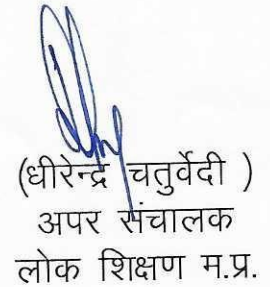 (धीरेन्द्र चतुर्वेदी )
अपर संचालक
लोक शिक्षण म.प्र.